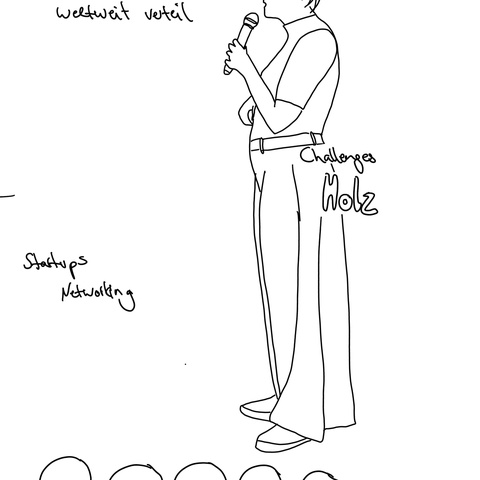 weltweit verteil
Challenges
Holz
Startups
Networking